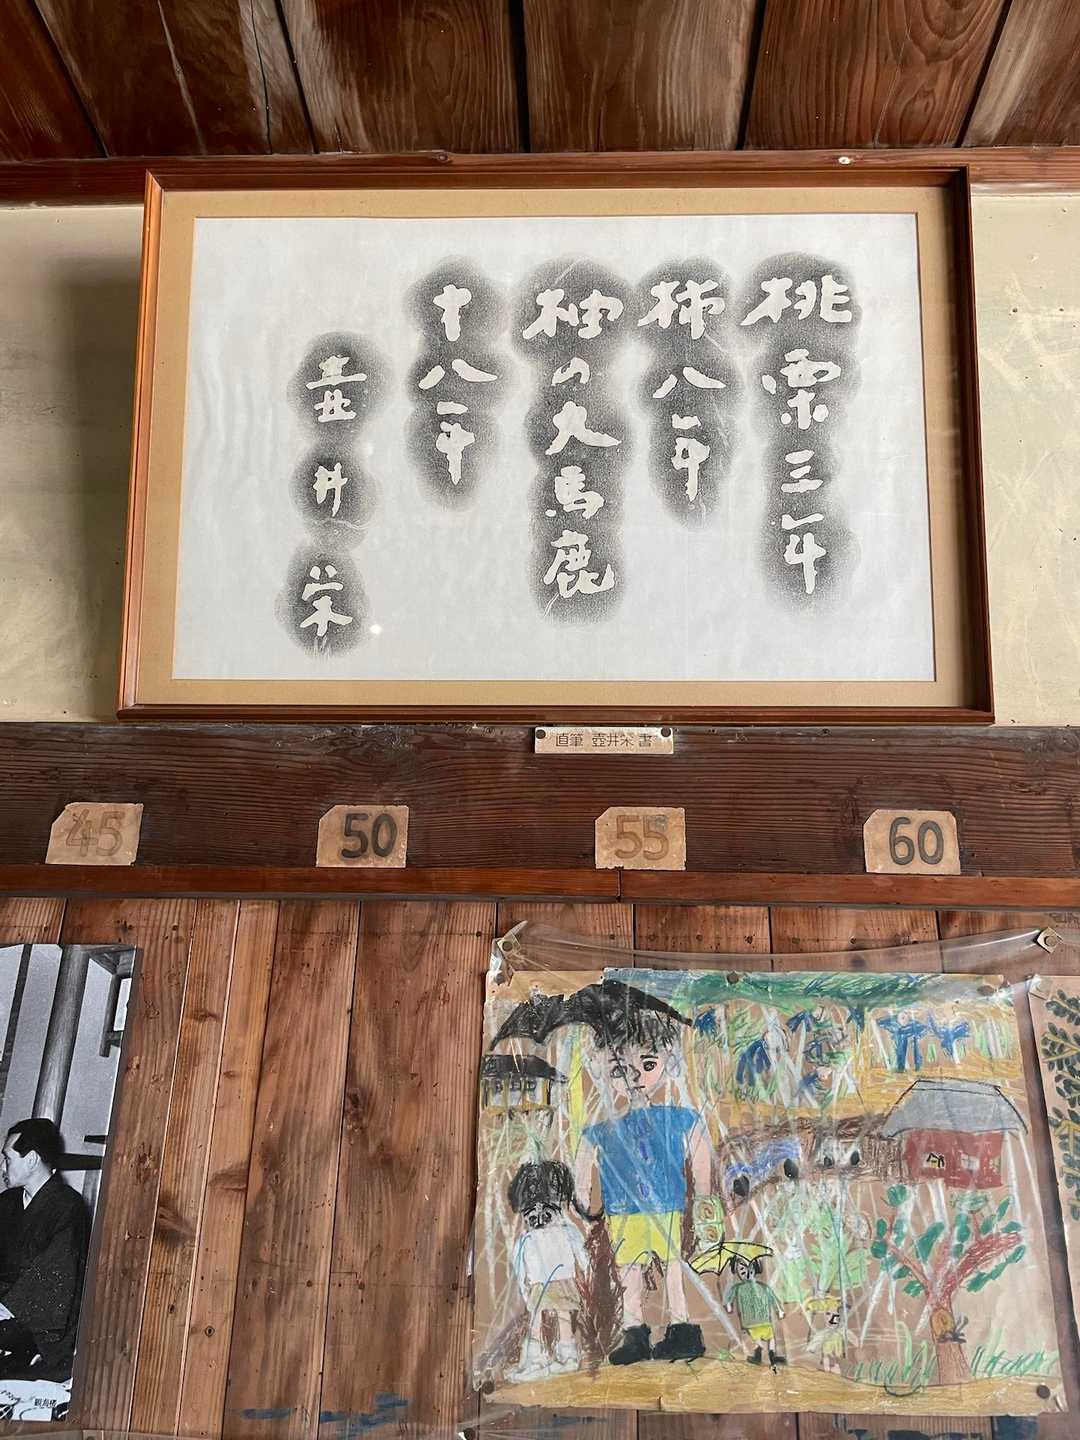 桃栗三年
柿八年
柚の大馬鹿
十八年
壷井栄
直筆 壺井栄 書
45
50
55
60